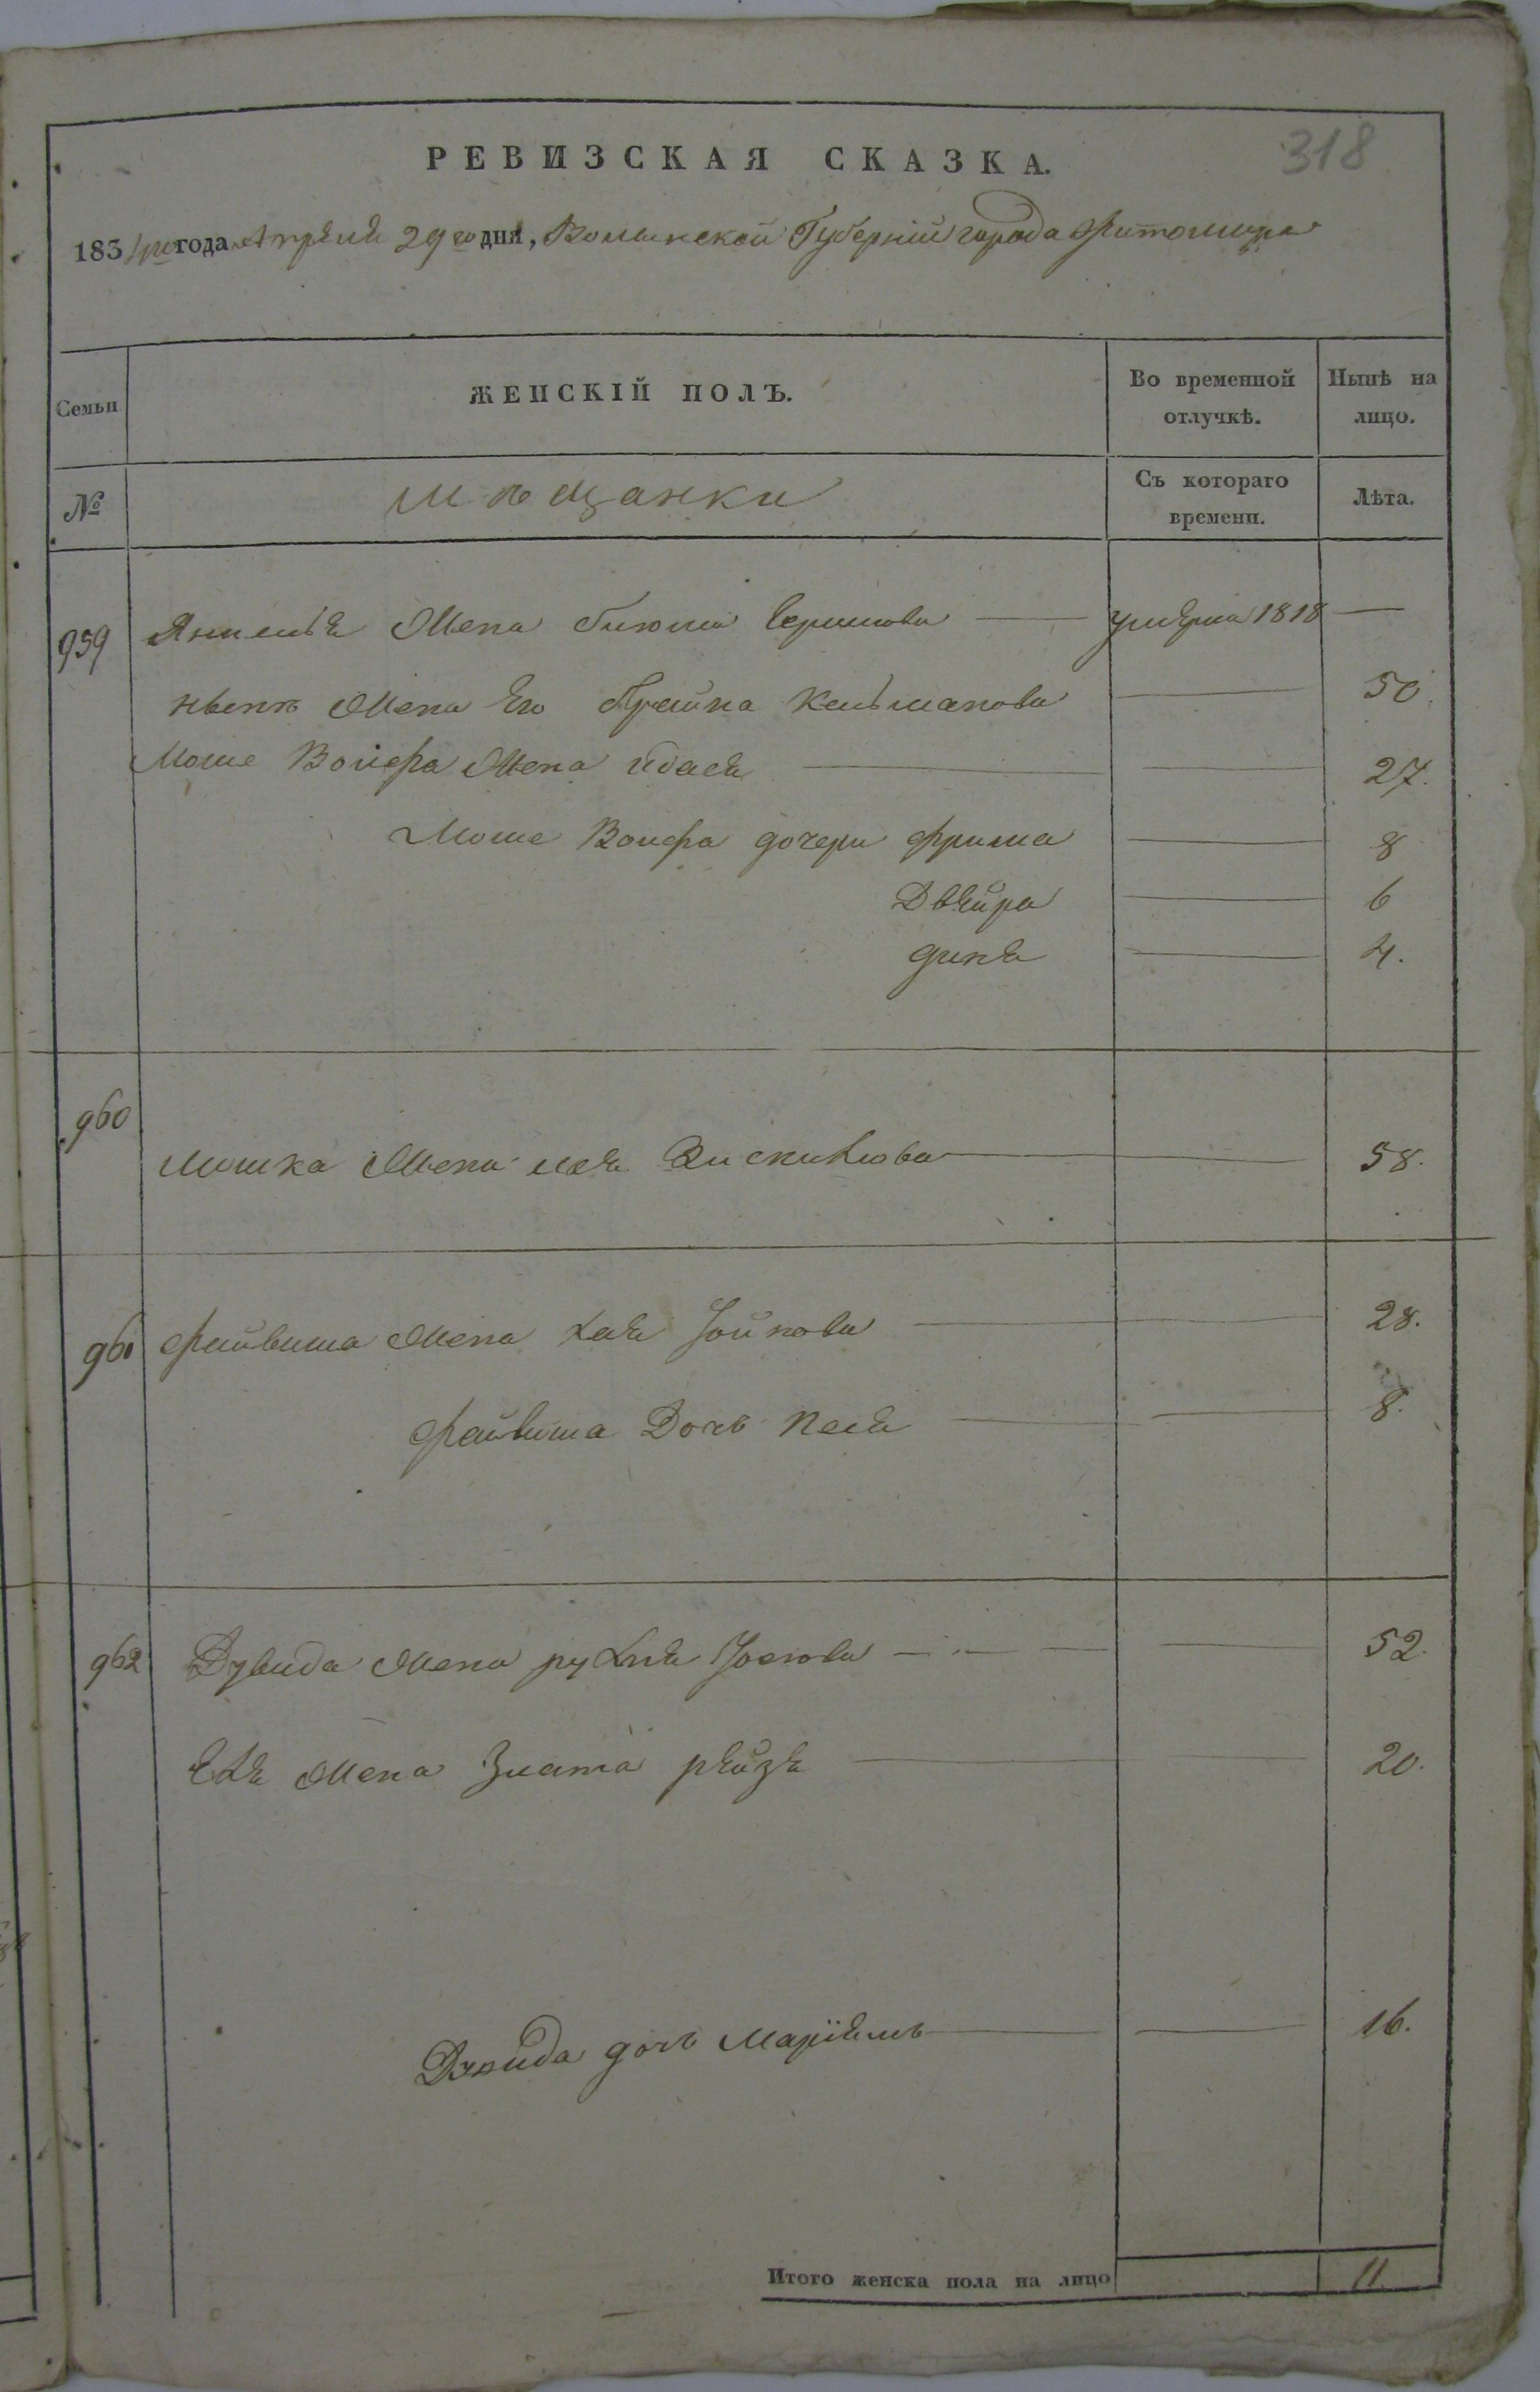 318
РЕВИЗСКАЯ СКАЗКА.
1834го года Апреля 29го дня, Волынской Губернии города Житомира
Семьи
ЖЕНСКІЙ ПОЛЪ.
Во временной отлучкѣ.
Нынѣ на лицо.
№
Мещанки
Съ котораго времени.
Лѣта.
959 Жена Блюма умерла 1818 —
Жена Его Фрейна Кельманова 50.
Моше Волфа Жена Ибася 27.
Моше Волфа дочери Фрима 8
Двейра 6
Дина 4.
960
Мошка Жена Лея 58.
961 Файвиша Жена Хая 28.
Файвиша Дочь Песя 8.
962 Дувида Жена рухля Йосіова 52.
Жена Злата рейзя 20.
Дувида дочь Маріемъ 16.
Итого женска пола на лицо 11.